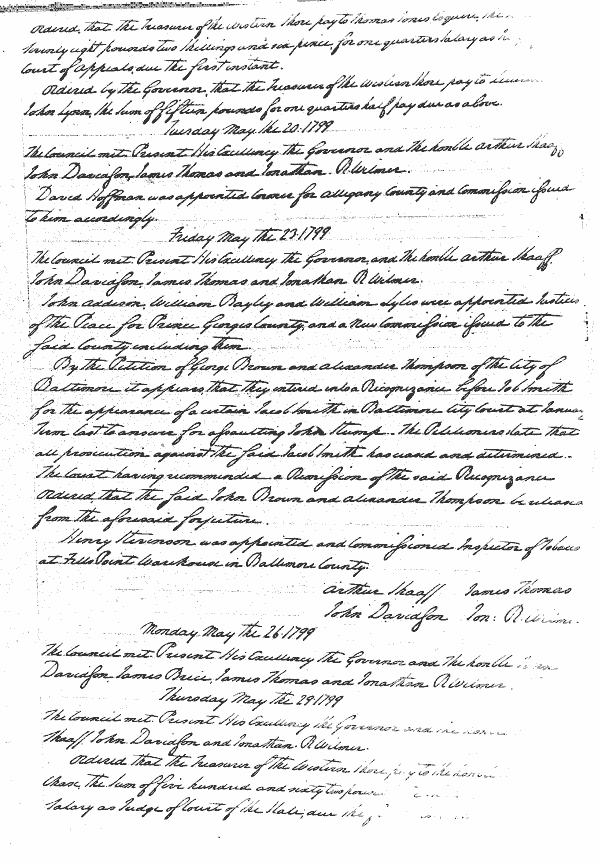 Ordered, that the Treasurer of the Western Shore pay to Thomas Jones Esquire, the
Seventy eight pounds two shillings and six pence for one quarters Salary as
Court of Appeals, due the first instant.
Ordered by the Governor, that the Treasurer of the Western Shore pay to
John Lynn, the sum of fifteen pounds for one quarters half pay due as above.
Tuesday May the 20. 1799
The Council met. Present His Excellency the Governor and The honble Arthur Shaaff
John Davidson, James Thomas and Jonathan R. Wilmer.
David Hoffman was appointed Coroner for Allegany County and Commission issued
to him accordingly.
Friday May the 23. 1799
The Council met. Present His Excellency the Governor, and The honble Arthur Shaaff.
John Davidson, James Thomas and Jonathan R Wilmer.
John Addison, William Bayley and William Lyles were appointed Justices
of the Peace for Prince Georges County, and a New Commission issued to the
said County, including them.
By the Petition of George Brown and Alexander Thompson of the City of
Baltimore it appears, that they entered into a Recognizance before Job Smith
for the appearance of a certain Jacob Smith in Baltimore City Court at January
Term last to answer for assaulting John Stump. The Petitioners state that
all prosecution against the said Jacob Smith has ceased and determined.
The Court having recommended a Remission of the said Recognizance
Ordered, that the said John Brown and Alexander Thompson be released
from the aforesaid forfeiture.
Henry Stevenson was appointed and Commissioned Inspector of Tobacco
at Fells Point Warehouse in Baltimore County.
Arthur Shaaff James Thomas
John Davidson Jon: R. Wilmer
Monday May the 26. 1799
The Council met. Present His Excellency the Governor and The honble
Davidson, James Brice, James Thomas and Jonathan R Wilmer.
Thursday May the 29. 1799
The Council met. Present His Excellency the Governor and the honble
Shaaff, John Davidson and Jonathan R Wilmer.
Ordered that the Treasurer of the Western Shore, pay to the honble
Chase, the sum of five hundred and sixty two
Salary as Judge of Court of the State, due the